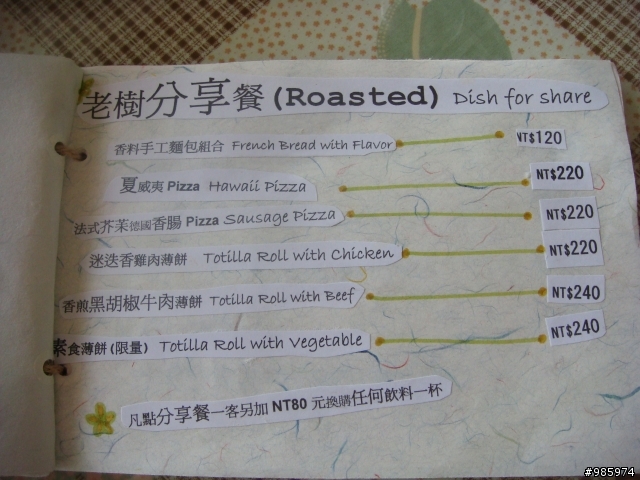 老樹分享餐(Roasted) Dish for share
香料手工麵包組合 French Bread with Flavor NT$120
夏威夷 Pizza Hawaii Pizza NT$220
法式芥茉德國香腸 Pizza Sausage Pizza NT$220
迷迭香雞肉薄餅 Totilla Roll with Chicken NT$220
香煎黑胡椒牛肉薄餅 Totilla Roll with Beef NT$240
素食薄餅(限量) Totilla Roll with Vegetable NT$240
凡點分享餐一客另加 NT80 元換購任何飲料一杯
#985974